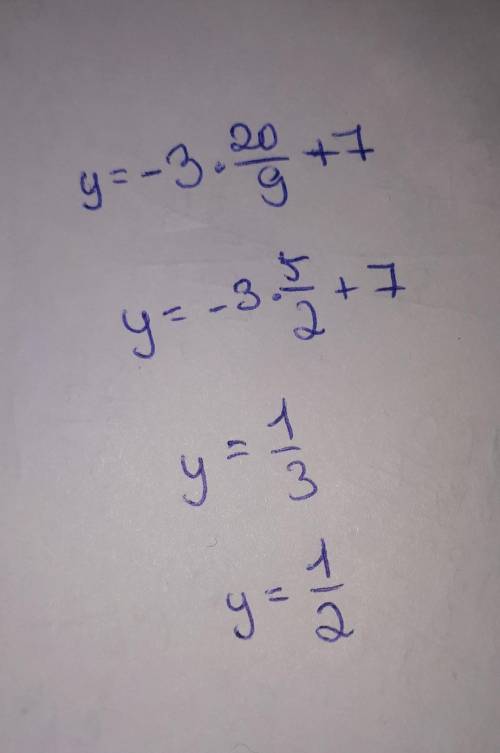 y = -3 · 20/9 + 7
y = -3 · 5/2 + 7
y = 1/3
y = 1/2